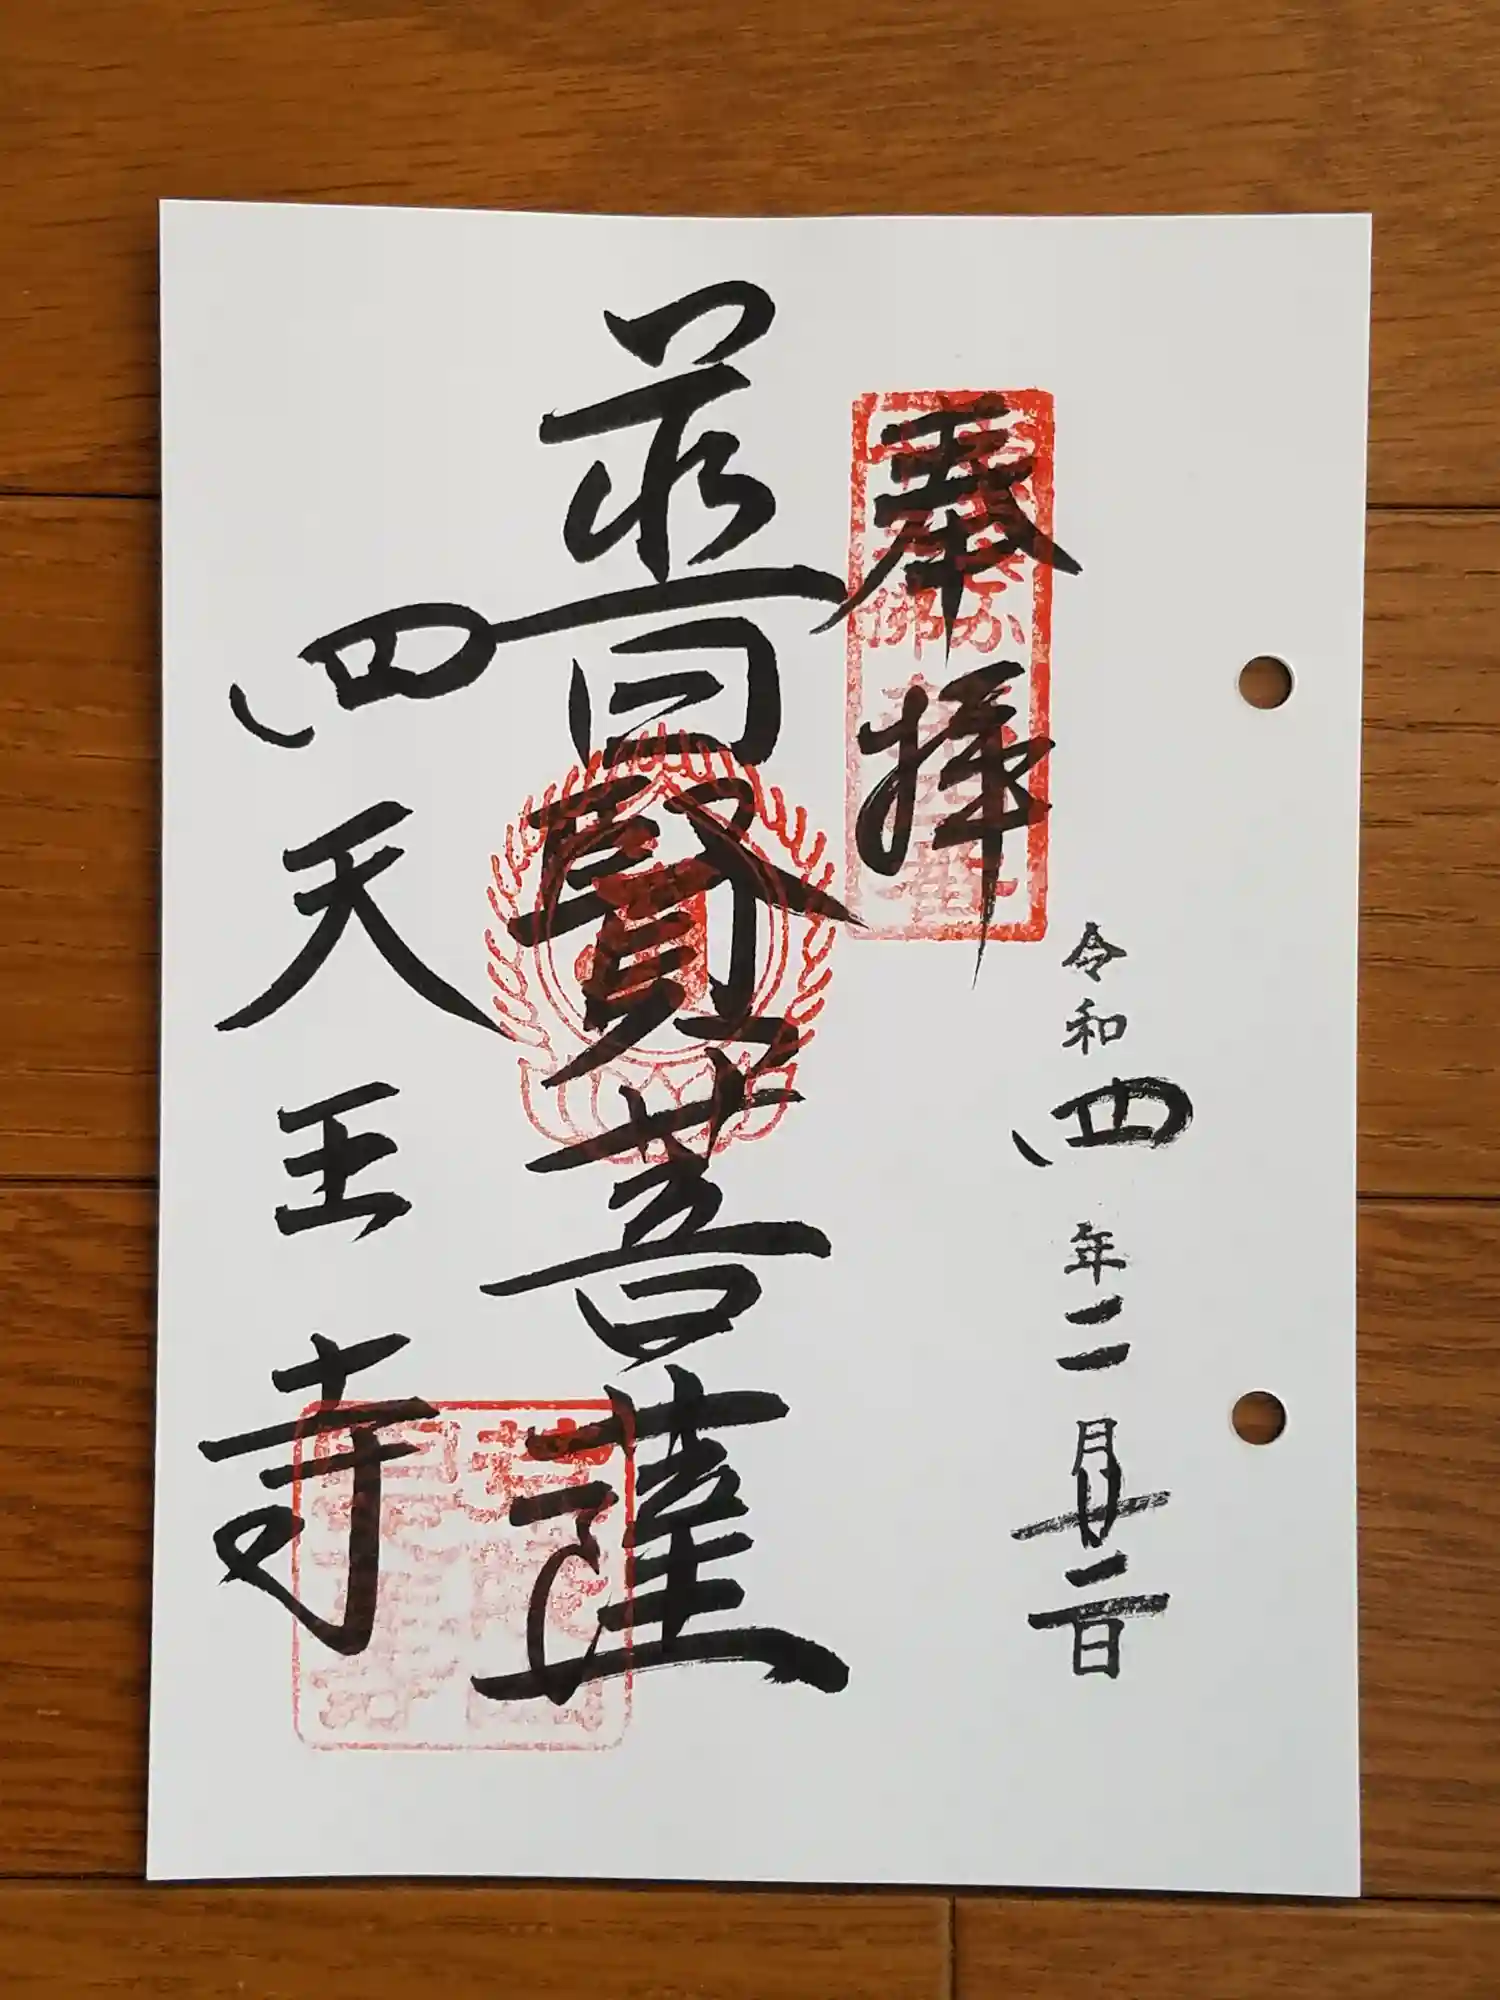 奉拝
令和四年二月廿二日
普賢菩薩
四天王寺